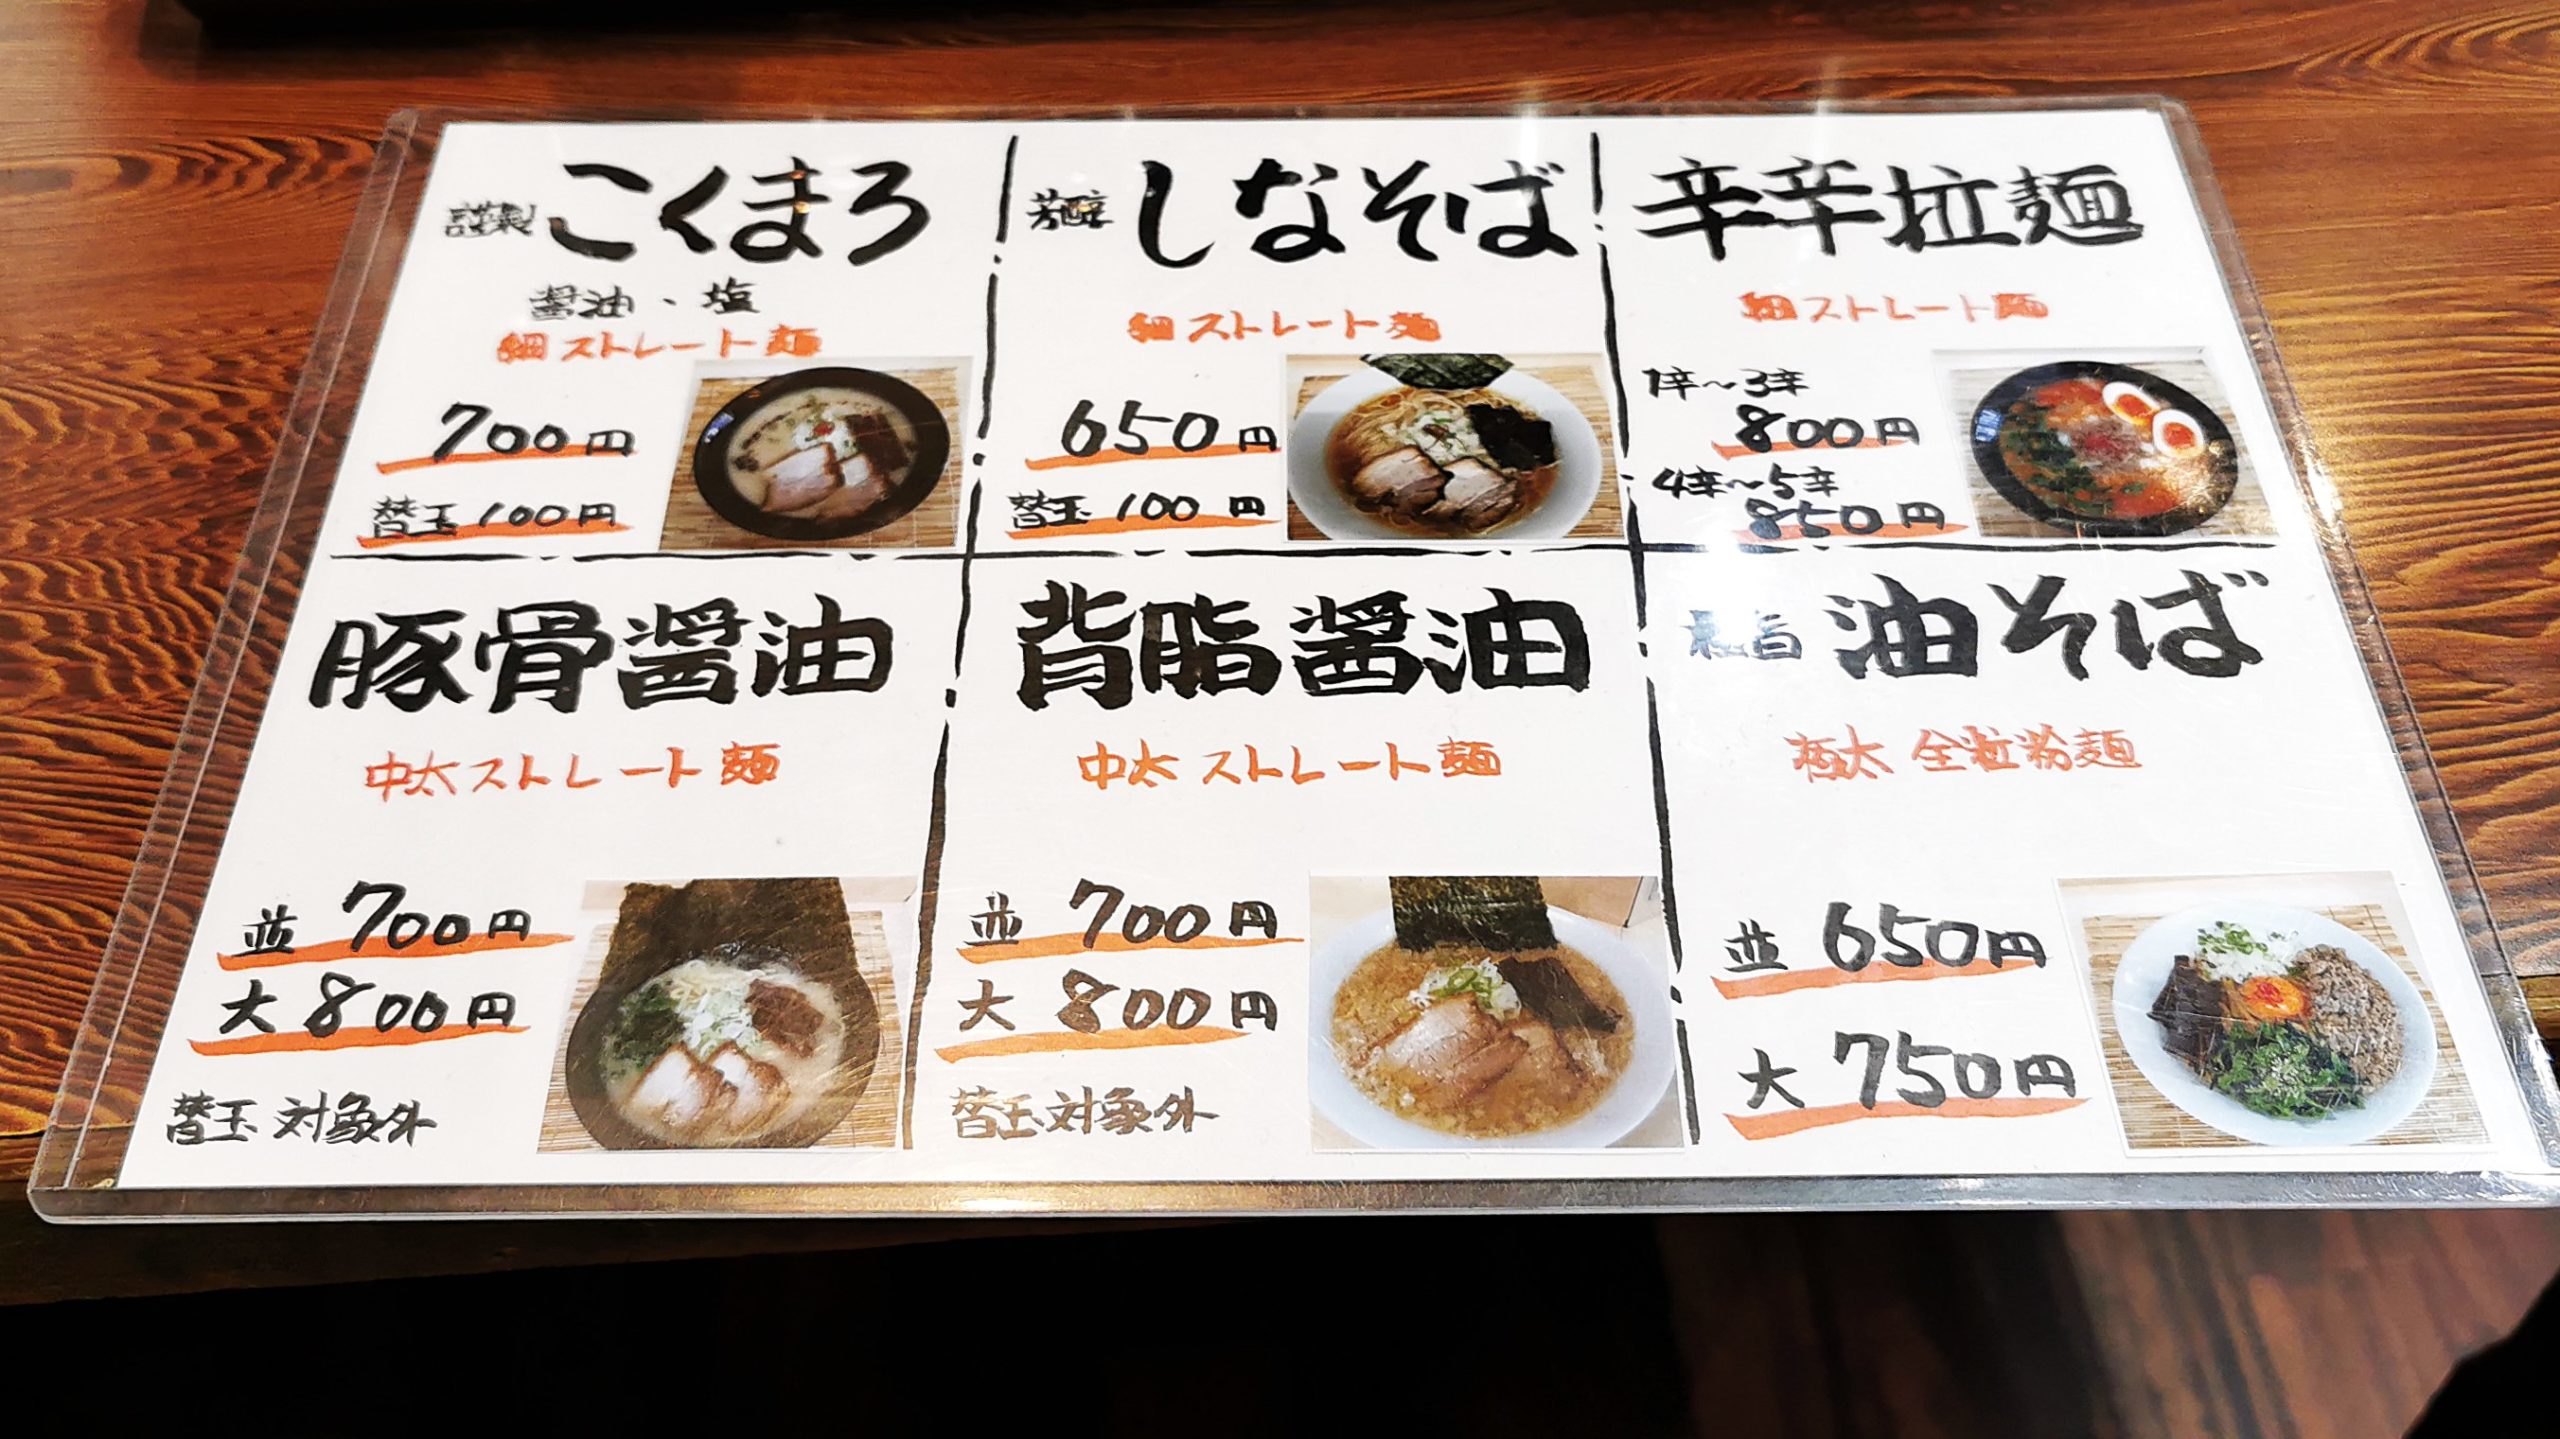 謹製 こくまろ
醤油・塩
細ストレート麺
700円
替玉 100円
芳醇 しなそば
細ストレート麺
650円
替玉 100円
辛辛拉麺
細ストレート麺
1辛〜3辛
800円
4辛〜5辛
850円
豚骨醤油
中太ストレート麺
並 700円
大 800円
替玉 対象外
背脂醤油
中太ストレート麺
並 700円
大 800円
替玉対象外
油そば
極太 全粒粉麺
並 650円
大 750円